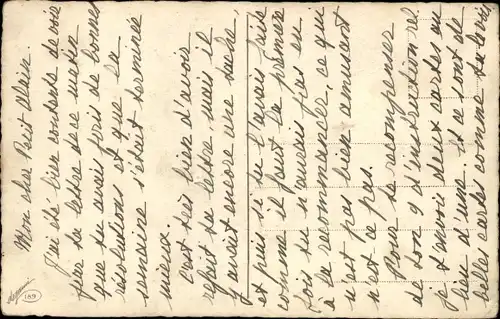 Mon cher Petit Alain.
J'ai été bien contente de voir
par ta lettre de ce matin
que tu avais pris de bonnes
résolutions et que la
semaine s'était terminée
mieux.
C'est très bien d'avoir
refait ta lettre, mais il
y avait encore une tache,
et puis si tu l'avais faite
comme il faut la première
fois tu n'aurais pas eu
à la recommencer, ce que
n'est pas bien amusant
n'est ce pas.
Pour te récompenser
de ton 9 d'instruction rel.
je t'envoie deux cartes au
lieu d'une. Et ce sont de
belles cartes comme tu vois
189